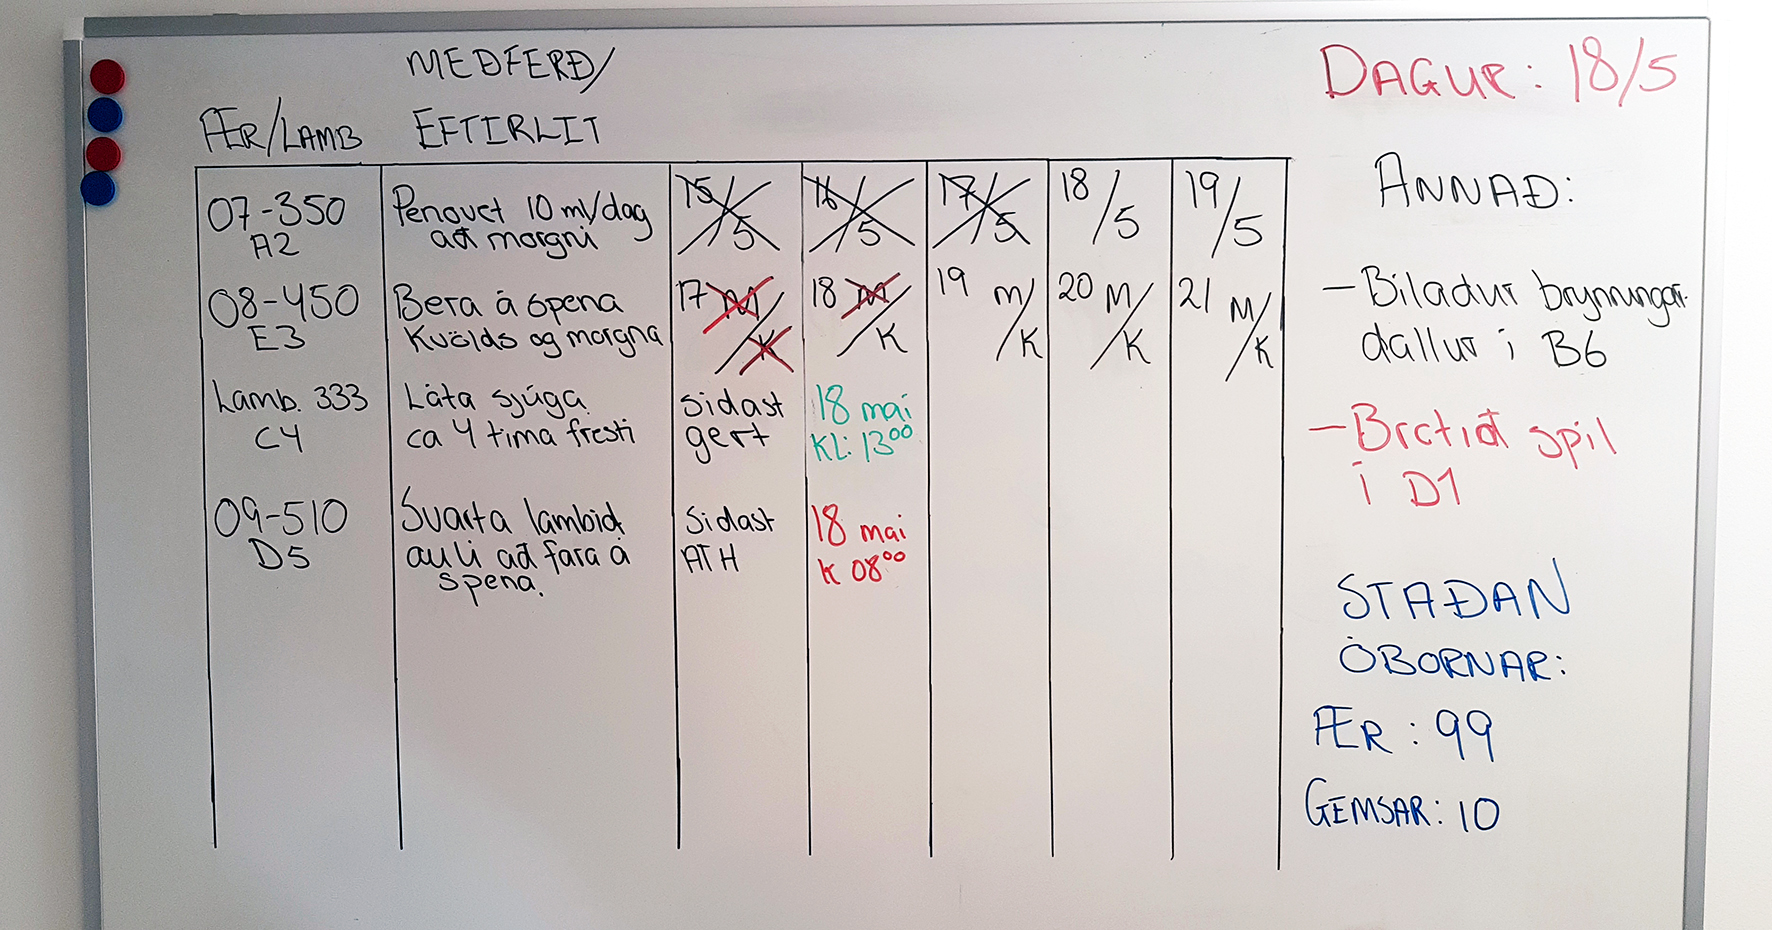 MEÐFERÐ/
ÆR/LAMB EFTIRLIT
07-350 Penovet 10 ml/dag 15/5 16/5 17/5 18/5 19/5
A2 að morgni
08-450 Bera á spena 17 M/K 18 M/K 19 M/K 20 M/K 21 M/K
E3 Kvölds og morgna
Lamb. 333 Láta sjúga Sidast 18 mai
C4 ca 4 tima fresti gert KL: 13⁰⁰
09-510 Svarta lambið Sidast 18 mai
D5 að fara á ATH K 08⁰⁰
spena.
DAGUR: 18/5
ANNAÐ:
- Biladur brynningar
dallur i B6
- Brotið spil
i D1
STAÐAN
ÓBORNAR:
ÆR: 99
GEMSAR: 10